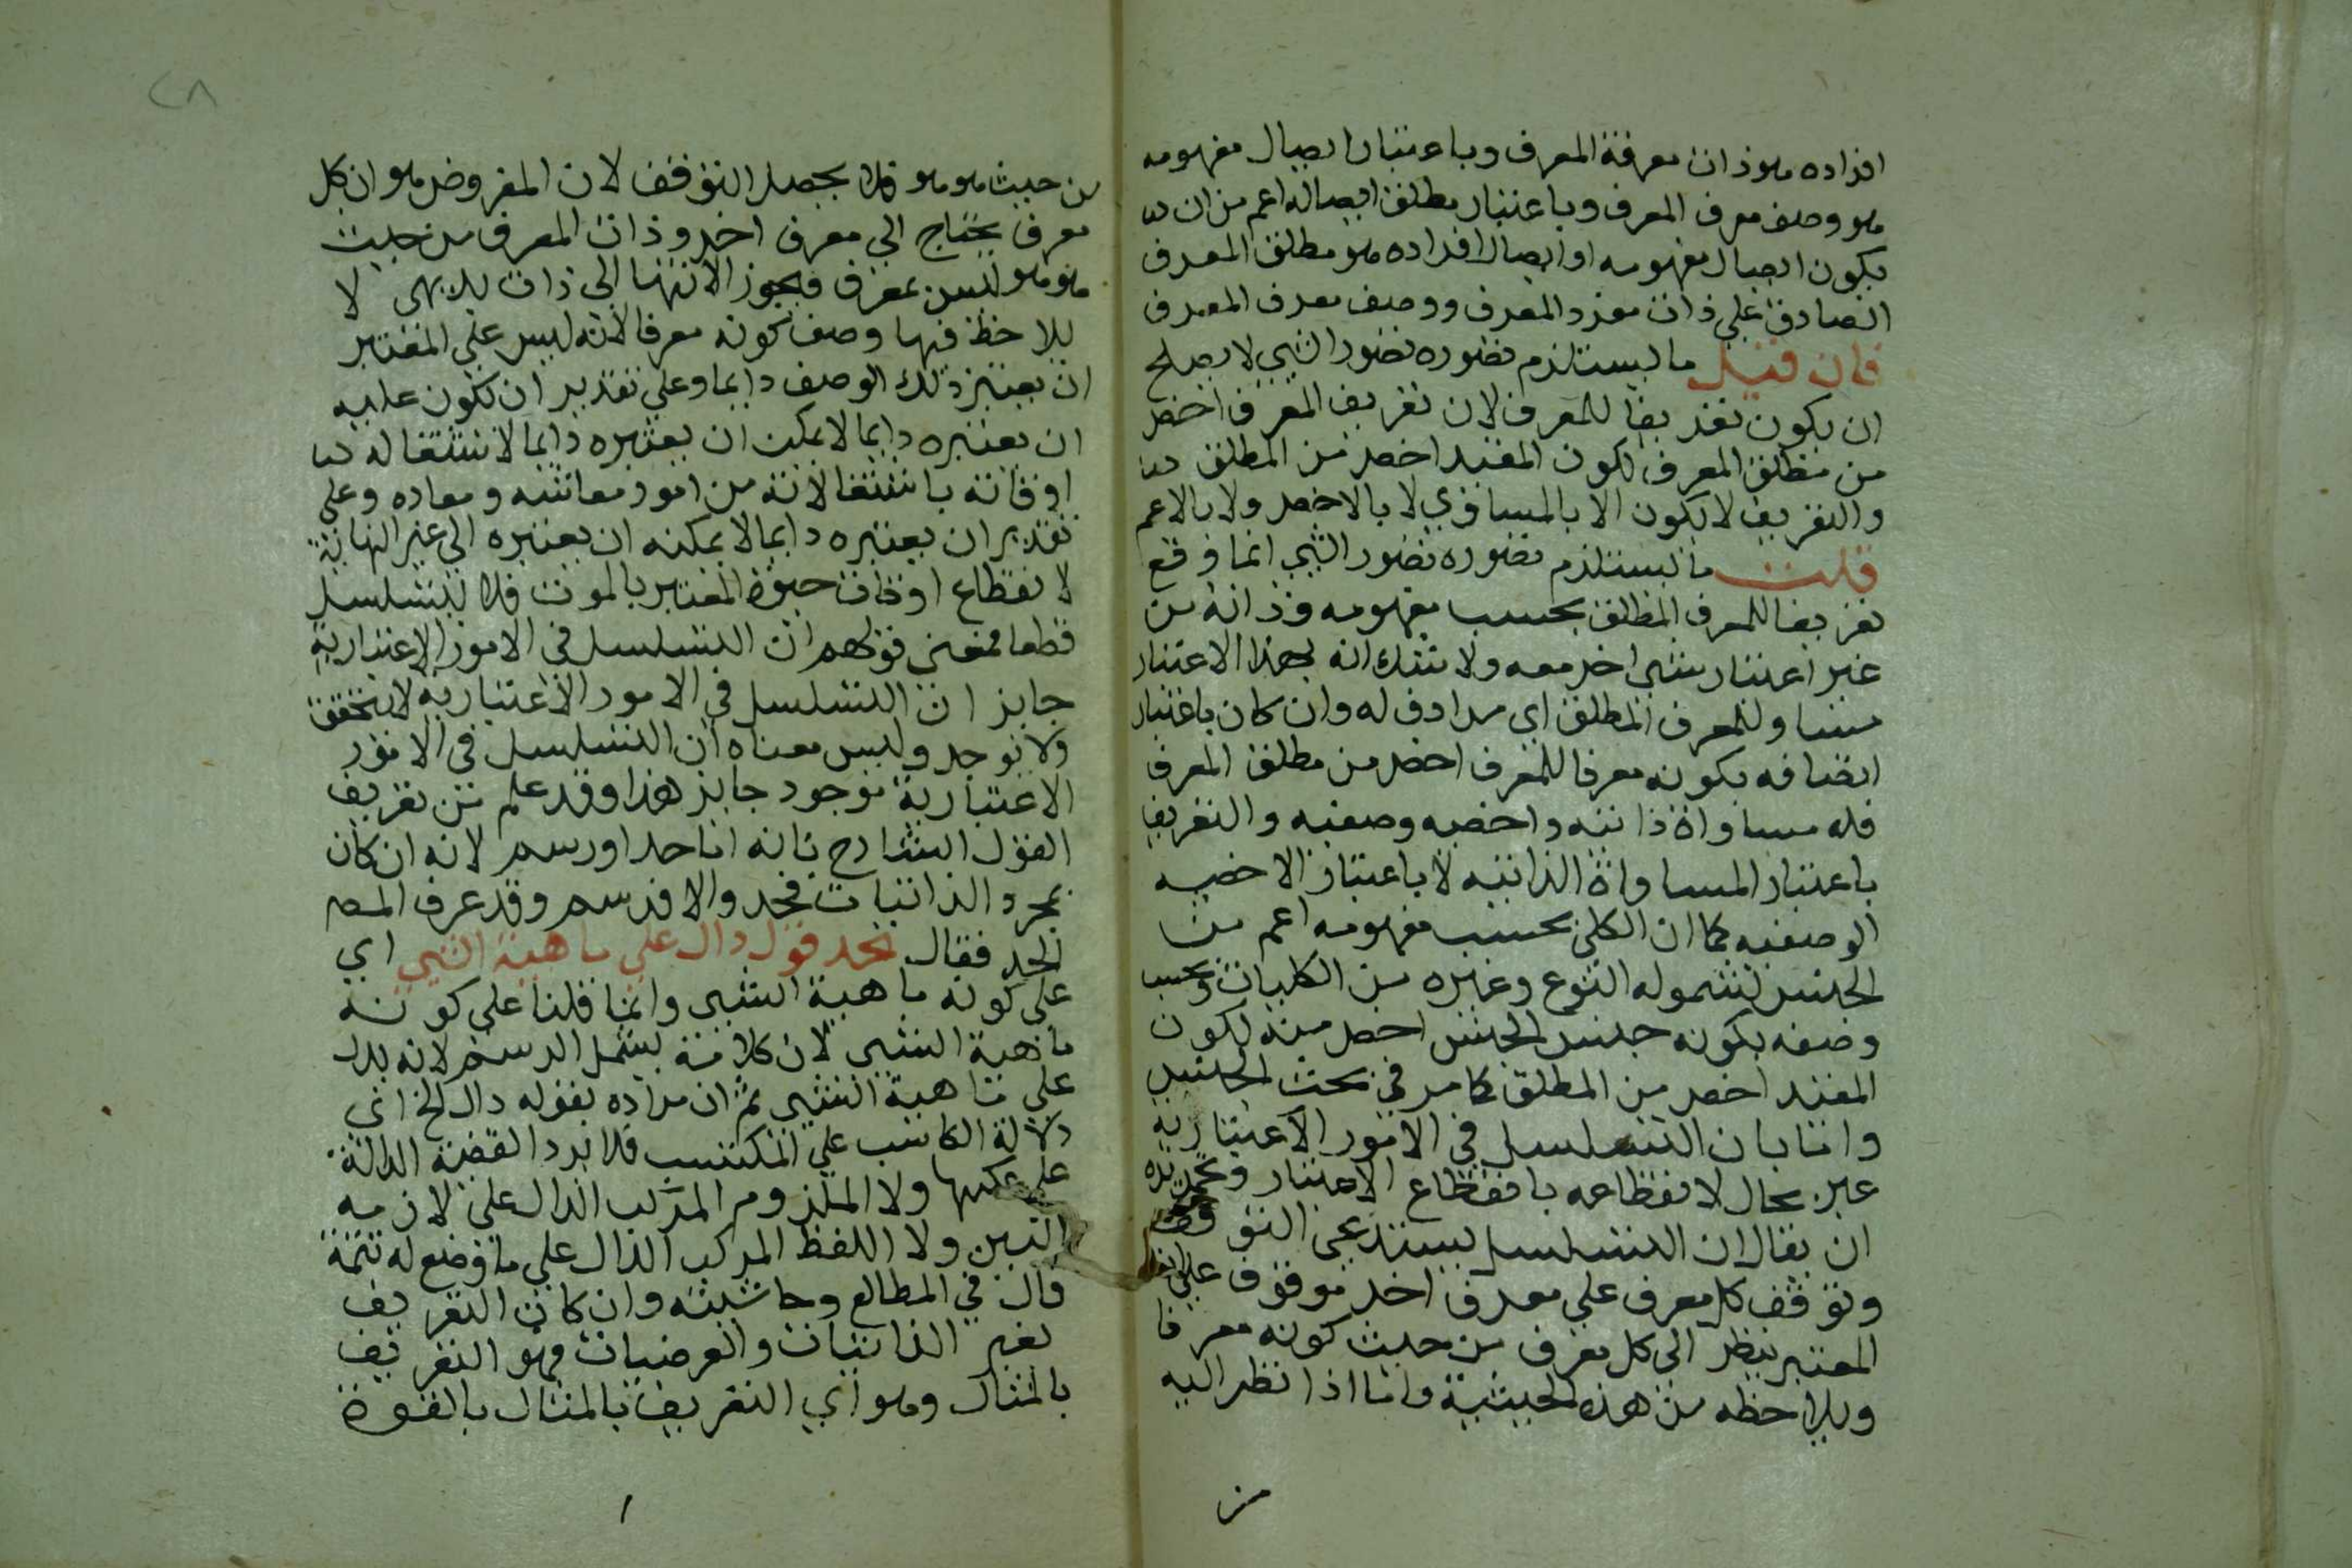 افراده هو ذات معرفة المعرف وباعتبار ايصال مفهومه
هو وصف معرف المعرف وباعتبار مطلق ايصاله اعم من ان
يكون ايصال مفهومه او ايصال افراده هو مطلق المعرف
الصادق علي ذات مفرد المعرف ووصف معرف المعرف
فان قيل ما يستلزم تصوره تصور الشي لا يصلح
ان يكون تعريفا للمعرف لان تعريف المعرف اخص
من مطلق المعرف لكون المقيد اخص من المطلق
والتعريف لا يكون الا بالمساوي لا بالاخص ولا بالاعم
قلت ما يستلزم تصوره تصور الشي انما وقع
تعريفا للمعرف المطلق بحسب مفهومه وذاته من
غير اعتبار شي اخر معه ولا شك انه بهذا الاعتبار
مساو للمعرف المطلق اي مرادف له وان كان باعتبار
اتصافه بكونه معرفا للمعرف اخص من مطلق المعرف
فله مساواة ذاتيه واخصيه وصفيه والتعريف
باعتبار المساواة الذاتيه لا باعتبار الاخصيه
الوصفيه كما ان الكلي بحسب مفهومه اعم من
الجنس لشموله النوع وغيره من الكليات وبحسب
وصفه بكونه جنس الجنس اخص منه لكون
المقيد اخص من المطلق كما مر في بحث الجنس
واما بان التسلسل في الامور الاعتباريه
غير محال لانقطاعه بانقطاع الاعتبار وتحريره
ان يقال ان التسلسل يستدعي التوقف
وتوقف كل معرف علي معرف اخر موقوف علي ان
المعتبر ينظر الي كل معرف من حيث كونه معرفا
ويلاحظه من هذه الحيثية واما اذا نظر اليه
من
من حيث هو هو فلا يحصل التوقف لان المفروض هو ان كل
معرف يحتاج الي معرف اخر وذات المعرف من حيث
هو هو ليس بمعرف فيجوز الانتها الي ذات بديهي لا
يلاحظ فيها وصف كونه معرفا لانه ليس علي المعتبر
ان يعتبر ذلك الوصف دايما وعلي تقدير ان يكون عليه
ان يعتبره دايما لا يمكن ان يعتبره دايما لاشتغاله
اوقاته باشتغالاته من امور معاشه ومعاده وعلي
تقدير ان يعتبره دايما لا يمكنه ان يعتبره الي غير النهاية
لانقطاع اوقات حيوة المعتبر بالموت فلا تسلسل
قطعا فمعني قولهم ان التسلسل في الامور الاعتبارية
جايز ان التسلسل في الامور الاعتباريه لا يتحقق
ولا يوجد وليس معناه ان التسلسل في الامور
الاعتبارية موجود جايز هذا وقد علم من تعريف
القول الشارح بانه اما حد او رسم لانه ان كان
بمجرد الذاتيات فحد والا فرسم وقد عرف المص
الحد فقال الحد قول دال علي ماهية الشي اي
علي كونه ماهية الشي وانما قلنا علي كونه
ماهية الشي لان كلامه يشمل الرسم لانه يدل
علي ماهية الشي ثم ان مراده بقوله دال الخ اي
دلالة الكاسب علي المكتسب فلا يرد القضية الدالة
علي عكسها ولا الملزوم المركب الدال علي لازمه
البين ولا اللفظ المركب الدال علي ما وضع له تتمة
قال في المطالع وحاشيته وان كان التعريف
بغير الذاتيات والعرضيات فهو التعريف
بالمثال وهو اي التعريف بالمثال بالقوة